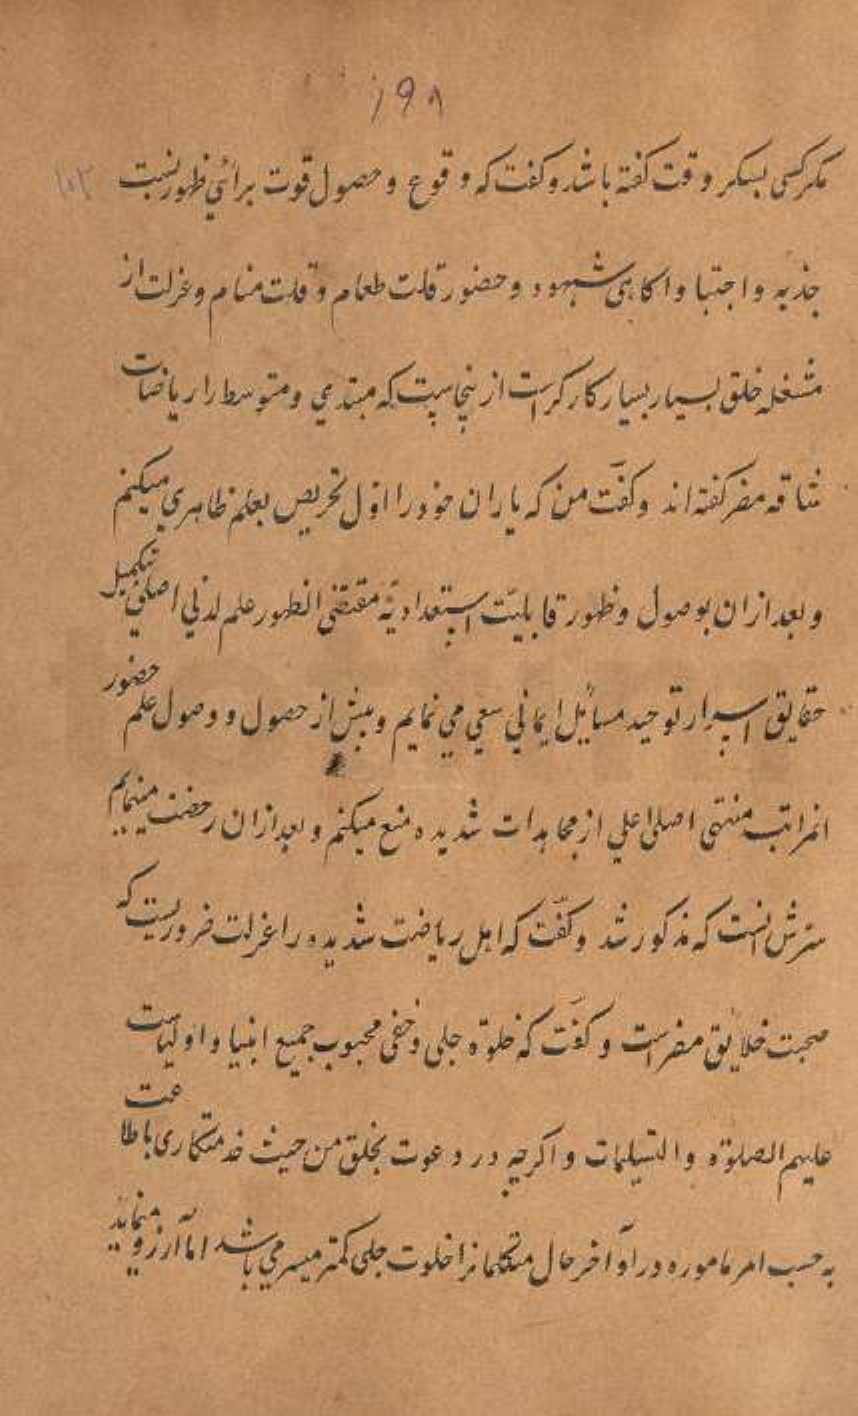 ۱۹۸
۱۰۲
مکر کسی بسکر وقت کفته باشد و کفت که وقوع و حصول قوت برائي ظهور نسبت
جذبه و اجتبا و اکاهی شهود و حضور قلت طعام و قلت منام و عزلت از
مشغله خلق بسیار بسیار کارکر است از ینجاست که مبتدي و متوسط را ریاضات
شاقه مضر کفته اند و کفت من که یاران خود را اول تحریص بعلم ظاهري میکنم
و بعد ازان بوصول و ظهور قابلیت استعدادیّه مقتضی الظهور علم لدني اصلي تکمیل
حقایق اسرار توحید مسائل ایماني سعي مي نمایم و پیش از حصول و وصول علم حضور
انمراتب منتهی اصلی اعلي از مجاهدات شدیده منع میکنم و بعد ازان رخصت مینمایم
سرّش انست که مذکور شد و کفت که اهل ریاضت شدیده را عزلت ضروریست که
صحبت خلایق مضر است و کفت که خلوة جلی و خفی محبوب جمیع انبیا و اولیاست
علیهم الصلوة و التسلیمات و اکرچه در دعوت بخلق من حیث خدمتکاری باطاعت
به حسب امر ماموره در اوآخر حال متکلمانرا خلوت جلی کمتر میسر مي باشد اما آرزویـه مینماید